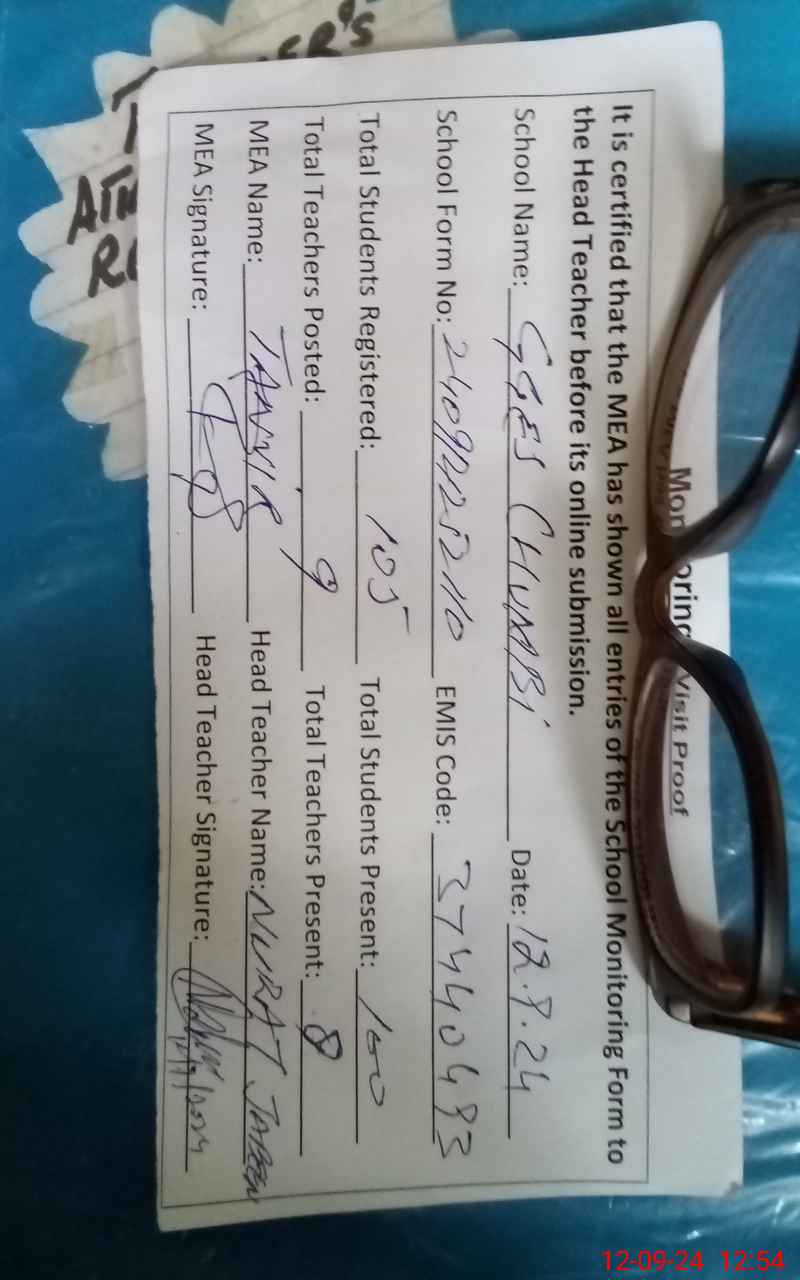 Monitoring Visit Proof
It is certified that the MEA has shown all entries of the School Monitoring Form to
the Head Teacher before its online submission.
School Name: GGES CHUMBI Date: 12.9.24
School Form No: 2409225210 EMIS Code: 37440493
Total Students Registered: 105 Total Students Present: 100
Total Teachers Posted: 9 Total Teachers Present: 8
MEA Name: TANVIR Head Teacher Name: NUZHAT JABEEN
MEA Signature: Head Teacher Signature: 12/9/2024
12-09-24 12:54